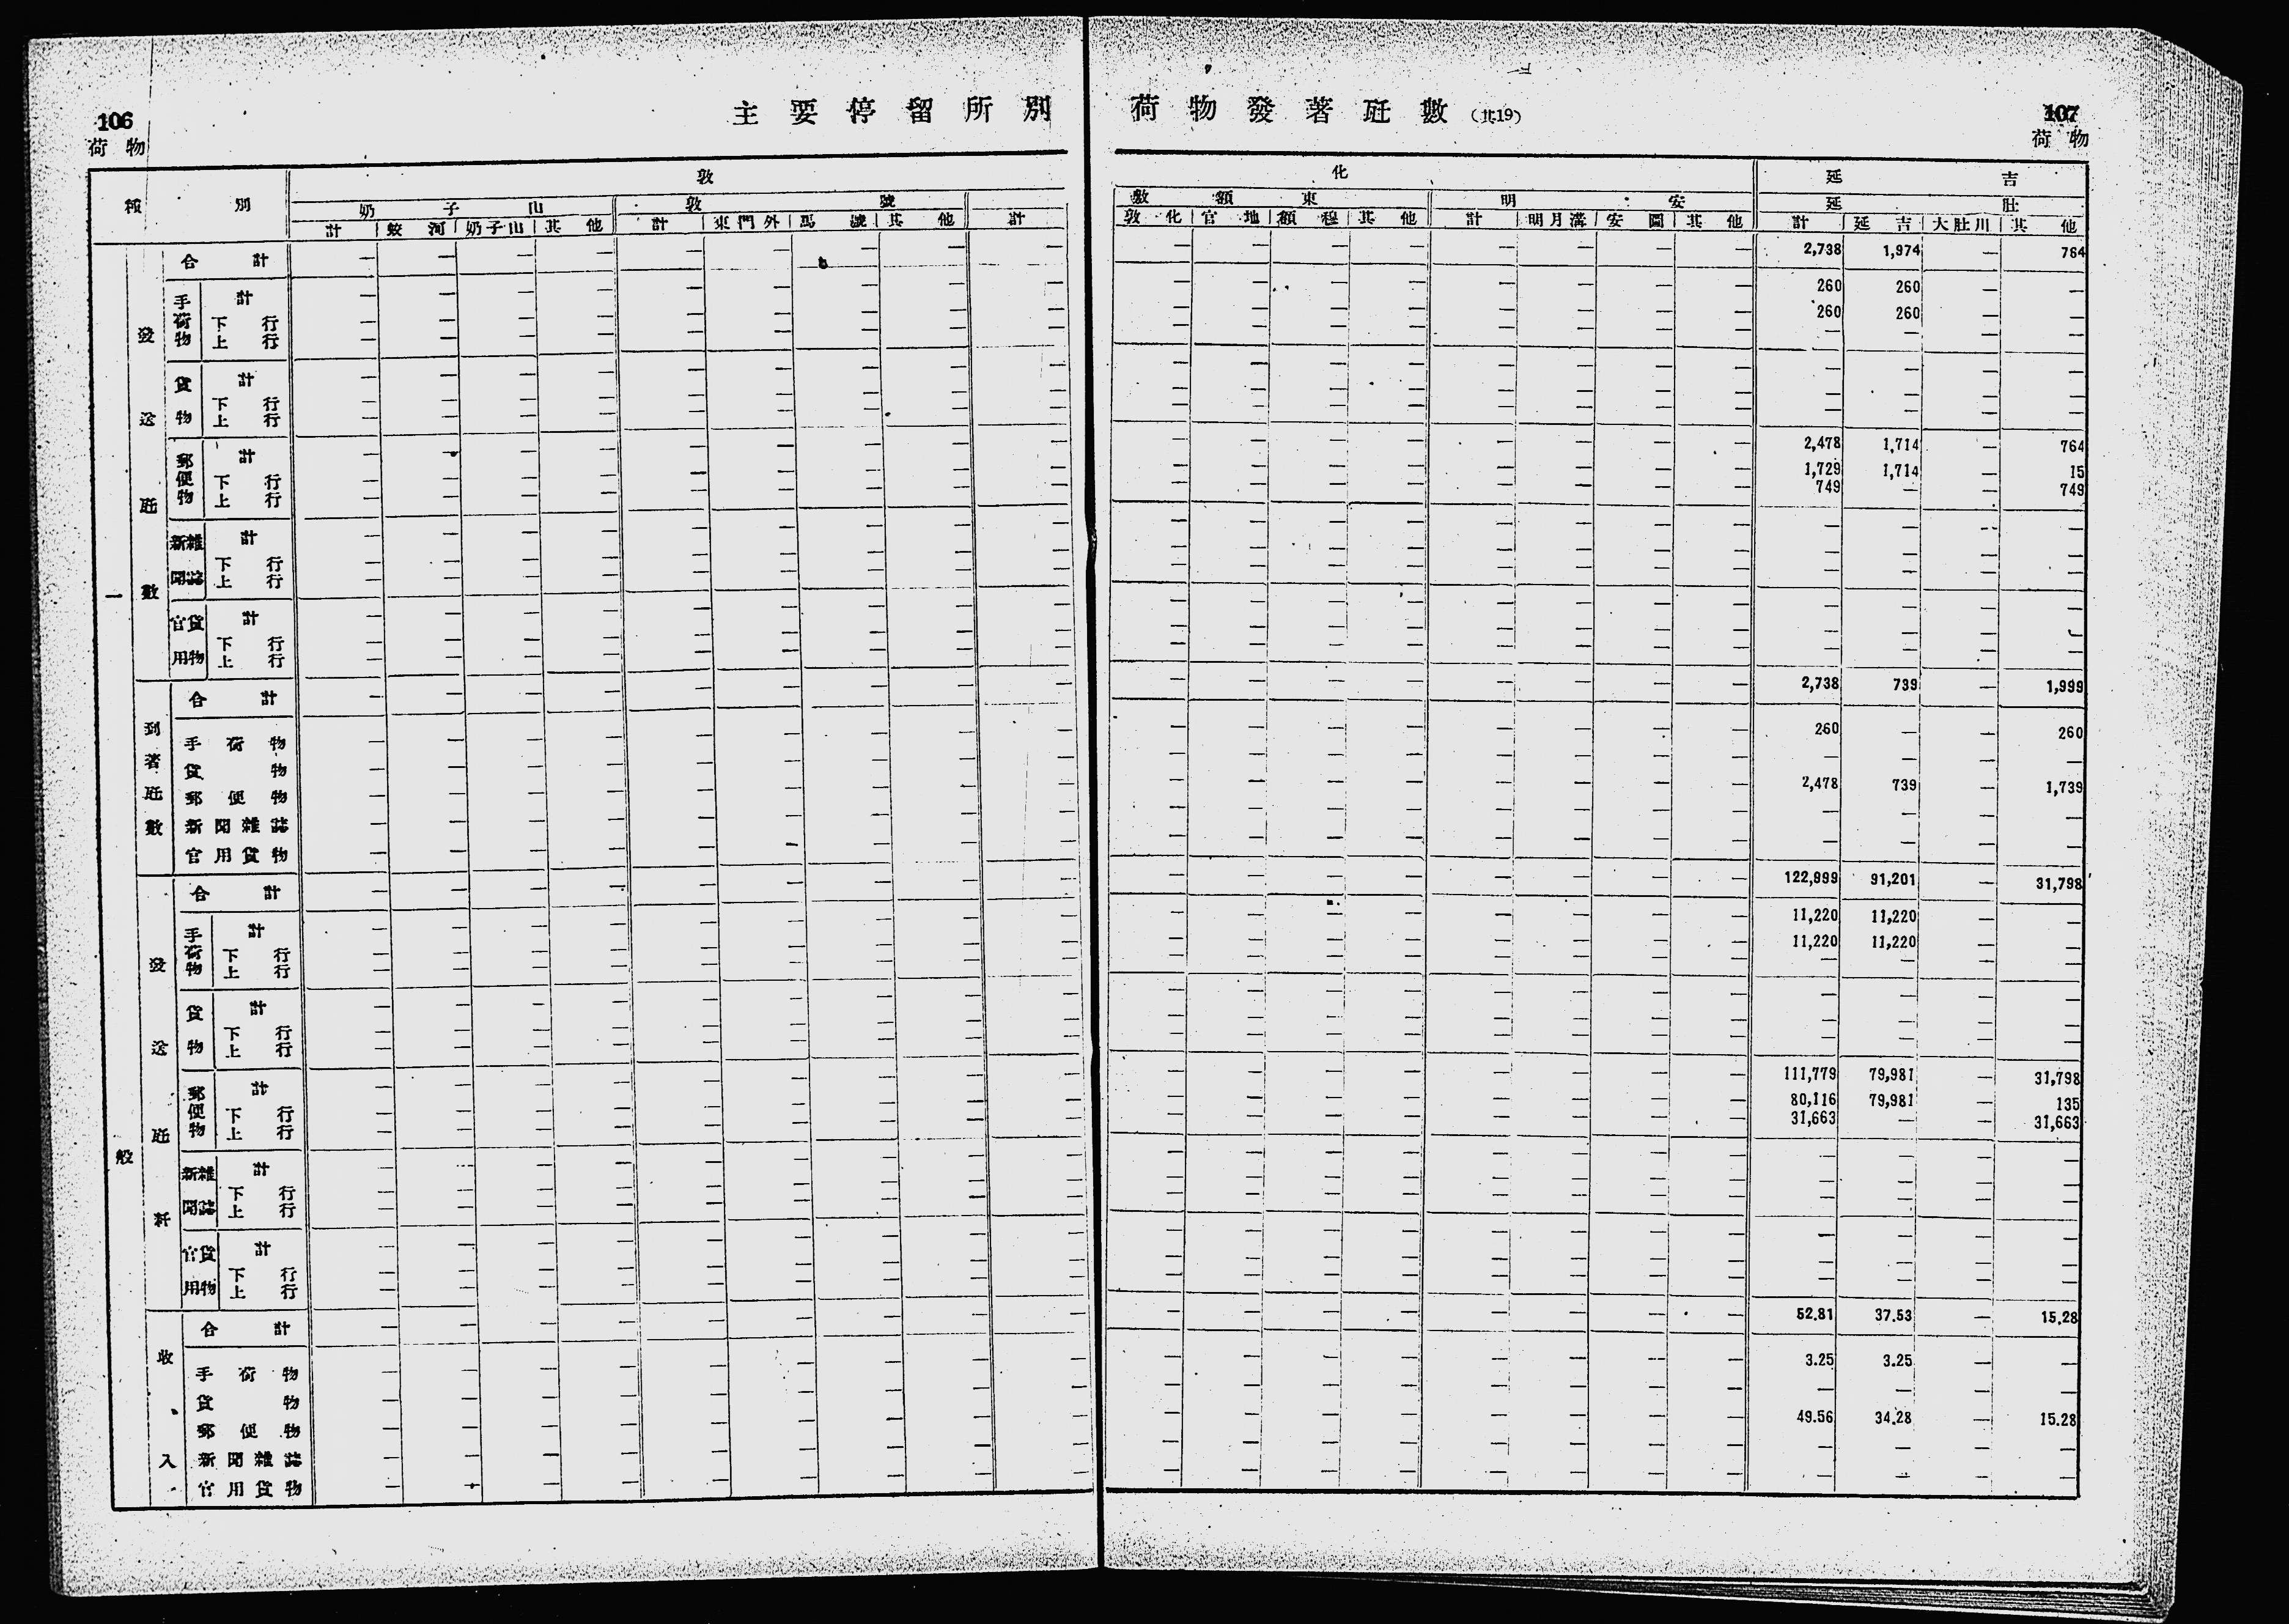 106
荷物
主要停留所別
荷物發著瓩數（其19）
107
荷物
種別 敦
化 延吉
奶子山 敦號
敷額東 明安 延肚
計 蛟河 奶子山 其他 計 東門外 馬號 其他 計
敦化 官地 額穆 其他 計 明月溝 安圖 其他 計 延吉 大肚川 其他
一般
發送瓩數
合計 — — — — — — — — — — — — — — — — — 2,738 1,974 — 764
手荷物 計 — — — — — — — — — — — — — — — — — 260 260 — —
下行 — — — — — — — — — — — — — — — — — 260 260 — —
上行 — — — — — — — — — — — — — — — — — — — — —
貨物 計 — — — — — — — — — — — — — — — — — — — — —
下行 — — — — — — — — — — — — — — — — — — — — —
上行 — — — — — — — — — — — — — — — — — — — — —
郵便物 計 — — — — — — — — — — — — — — — — — 2,478 1,714 — 764
下行 — — — — — — — — — — — — — — — — — 1,729 1,714 — 15
上行 — — — — — — — — — — — — — — — — — 749 — — 749
新聞雜誌 計 — — — — — — — — — — — — — — — — — — — — —
下行 — — — — — — — — — — — — — — — — — — — — —
上行 — — — — — — — — — — — — — — — — — — — — —
官用貨物 計 — — — — — — — — — — — — — — — — — — — — —
下行 — — — — — — — — — — — — — — — — — — — — —
上行 — — — — — — — — — — — — — — — — — — — — —
到著瓩數
合計 — — — — — — — — — — — — — — — — — 2,738 739 — 1,999
手荷物 — — — — — — — — — — — — — — — — — 260 — — 260
貨物 — — — — — — — — — — — — — — — — — — — — —
郵便物 — — — — — — — — — — — — — — — — — 2,478 739 — 1,739
新聞雜誌 — — — — — — — — — — — — — — — — — — — — —
官用貨物 — — — — — — — — — — — — — — — — — — — — —
發送瓩粁
合計 — — — — — — — — — — — — — — — — — 122,999 91,201 — 31,798
手荷物 計 — — — — — — — — — — — — — — — — — 11,220 11,220 — —
下行 — — — — — — — — — — — — — — — — — 11,220 11,220 — —
上行 — — — — — — — — — — — — — — — — — — — — —
貨物 計 — — — — — — — — — — — — — — — — — — — — —
下行 — — — — — — — — — — — — — — — — — — — — —
上行 — — — — — — — — — — — — — — — — — — — — —
郵便物 計 — — — — — — — — — — — — — — — — — 111,779 79,981 — 31,798
下行 — — — — — — — — — — — — — — — — — 80,116 79,981 — 135
上行 — — — — — — — — — — — — — — — — — 31,663 — — 31,663
新聞雜誌 計 — — — — — — — — — — — — — — — — — — — — —
下行 — — — — — — — — — — — — — — — — — — — — —
上行 — — — — — — — — — — — — — — — — — — — — —
官用貨物 計 — — — — — — — — — — — — — — — — — — — — —
下行 — — — — — — — — — — — — — — — — — — — — —
上行 — — — — — — — — — — — — — — — — — — — — —
收入
合計 — — — — — — — — — — — — — — — — — 52.81 37.53 — 15.28
手荷物 — — — — — — — — — — — — — — — — — 3.25 3.25 — —
貨物 — — — — — — — — — — — — — — — — — — — — —
郵便物 — — — — — — — — — — — — — — — — — 49.56 34.28 — 15.28
新聞雜誌 — — — — — — — — — — — — — — — — — — — — —
官用貨物 — — — — — — — — — — — — — — — — — — — — —